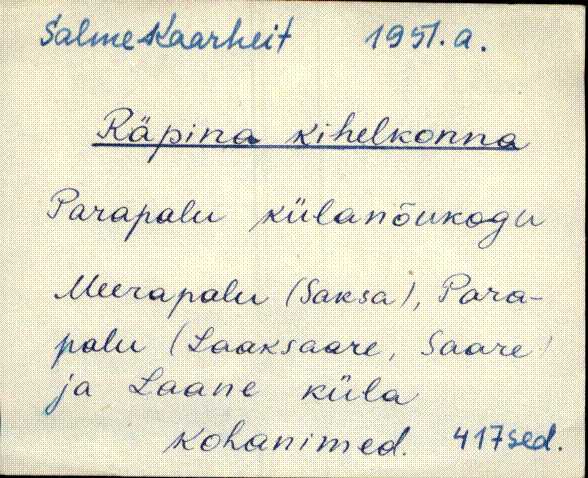 Salme Kaarheit 1951. a.
Räpina kihelkonna
Parapalu külanõukogu
Meerapalu (Saksa), Para-
palu (Laaksaare, Saare)
ja Laane küla
kohanimed. 417 sed.